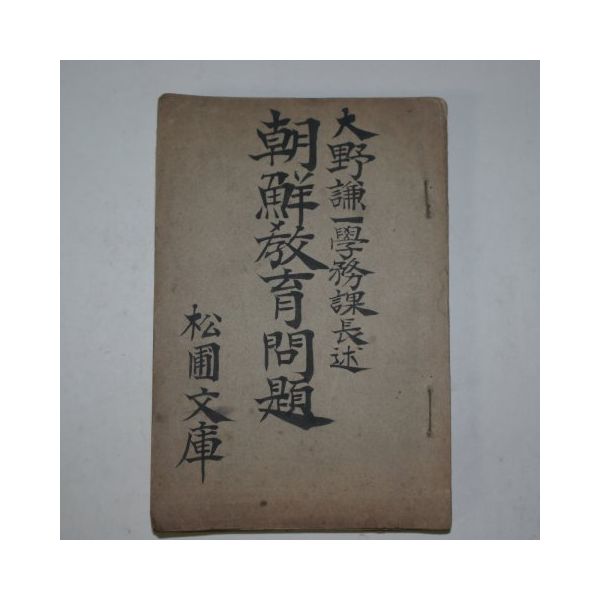 大野謙一學務課長述
朝鮮敎育問題
松圃文庫